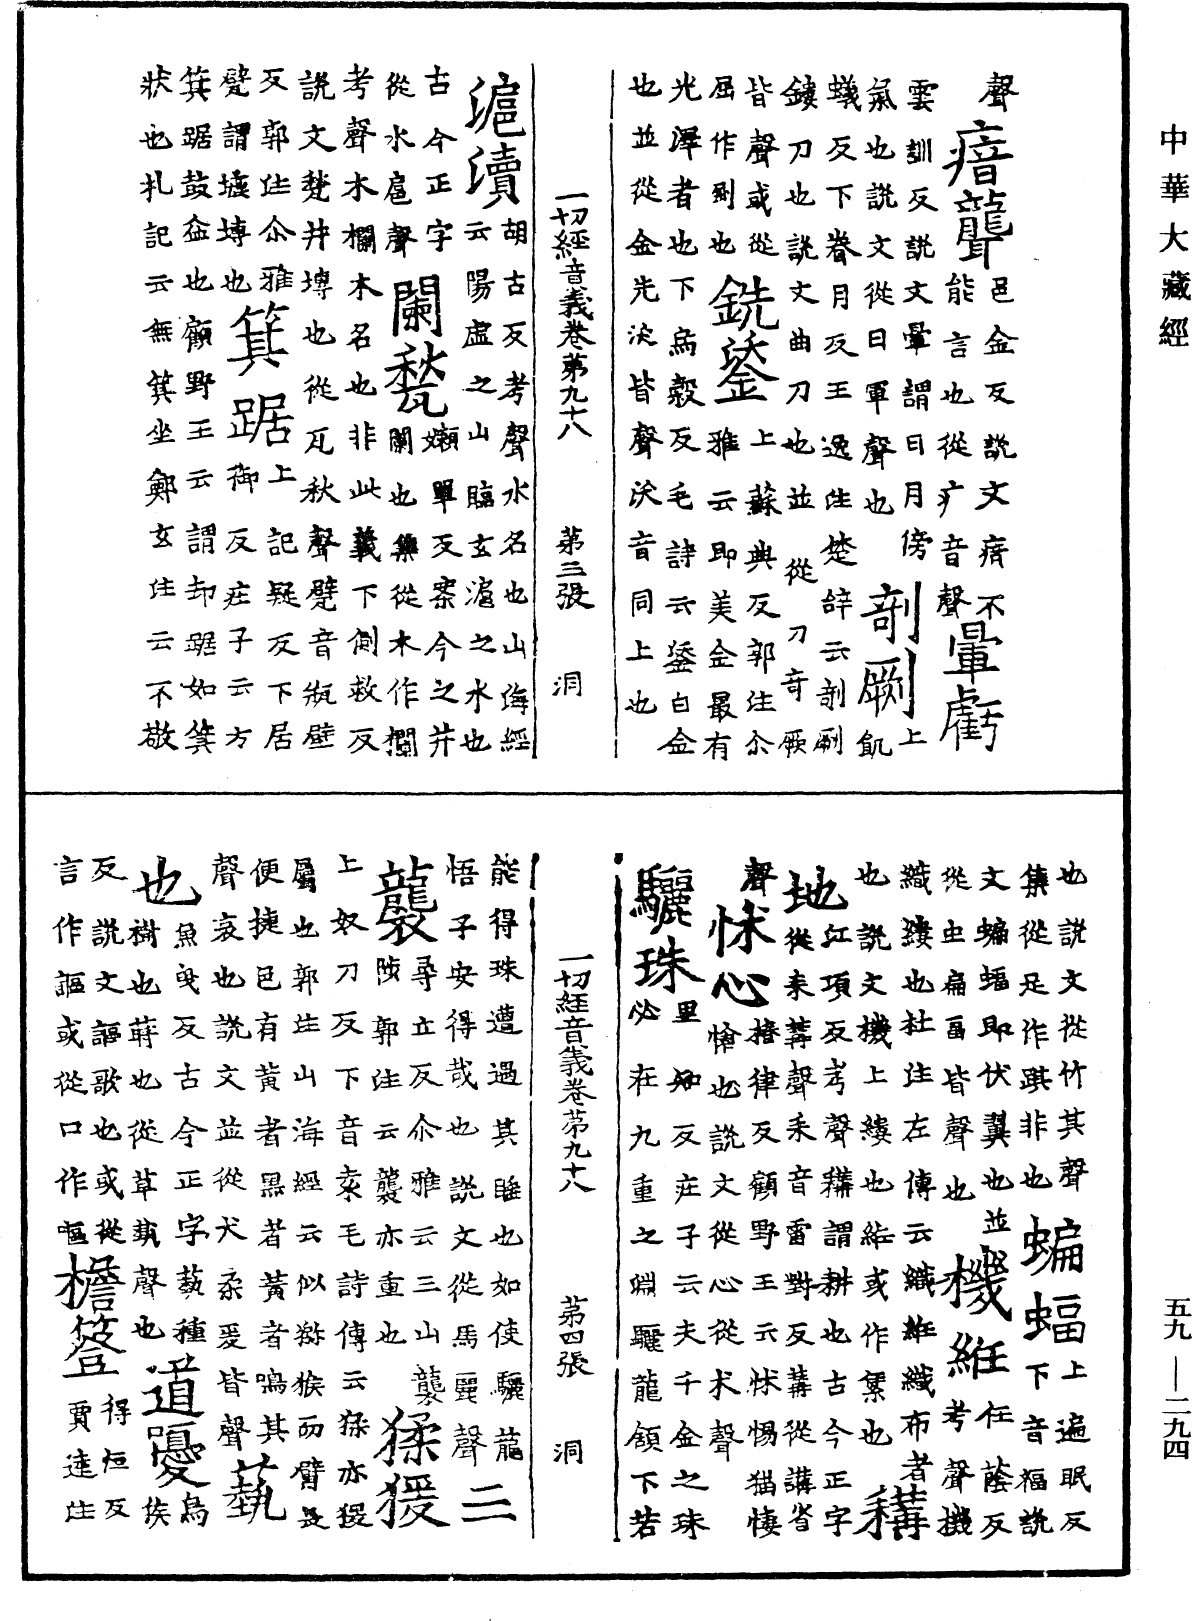 中華大藏經
聲
瘖聾
邑金反說文瘖不
能言也從疒音聲
暈虧
上
雲訓反說文暈謂日月傍
氣也說文從日軍聲也
剞劂
上
飢
蟻反下眷月反王逸注楚辝云剞劂
鏤刀也說文曲刀也並從刀奇厥
皆聲或從
屈作𠜾也
銑鋈
上蘇典反郭注尒
雅云即美金最有
光澤者也下烏縠反毛詩云鋈白金
也並從金先沃皆聲沃音同上也
一切經音義卷第九十八
第三張
洞
滬瀆
胡古反考聲水名也山海經
云陽虛之山臨玄滬之水也
古今正字
從水扈聲
闌甃
嬾單反案今之井
闌也集從木作欄
考聲木欄木名也非此義下側救反
說文甃井塼也從瓦秋聲甓音瓶壁
反郭注尒雅
甓謂㼾塼也
箕踞
上記疑反下居
御反莊子云方
箕踞鼓盆也顧野王云謂却踞如箕
狀也札記云無箕坐鄭玄注云不敬
也說文從竹其聲
集從足作踑非也
蝙蝠
上遍眠反
下音福說
文蝙蝠即伏翼也並
從虫扁畐皆聲也
機絍
任蔭反
考聲機
織縷也杜注左傳云織絍織布者
也說文機上縷也絍或作䋕也
耩
地
江項反考聲耩謂耕也古今正字
從耒冓聲耒音雷對反冓從講省
聲
怵心
椿律反顧野王云怵惕猶悽
愴也說文從心從朮聲
驪珠
里知反莊子云夫千金之珠
必在九重之淵驪龍頷下若
一切經音義卷第九十八
第四張
洞
能得珠遭過其睢也如使驪龍
悟子安得哉也說文從馬麗聲
三
襲
尋立反尒雅云三山襲
陟郭注云襲亦重也
猱猨
上奴刀反下音袁毛詩傳云猱亦猨
屬也郭注山海經云似獼猴而臂長
便捷巴有黃者黑者黃者鳴其
聲哀也說文並從犬柔爰皆聲
蓺
也
魚曳反古今正字蓺種
樹也蒔也從草埶聲也
遒
謳
烏
侯
反說文謳歌也或從
言作謳或從口作嘔
檐簦
得恒反
賈逵注
五九—二九四